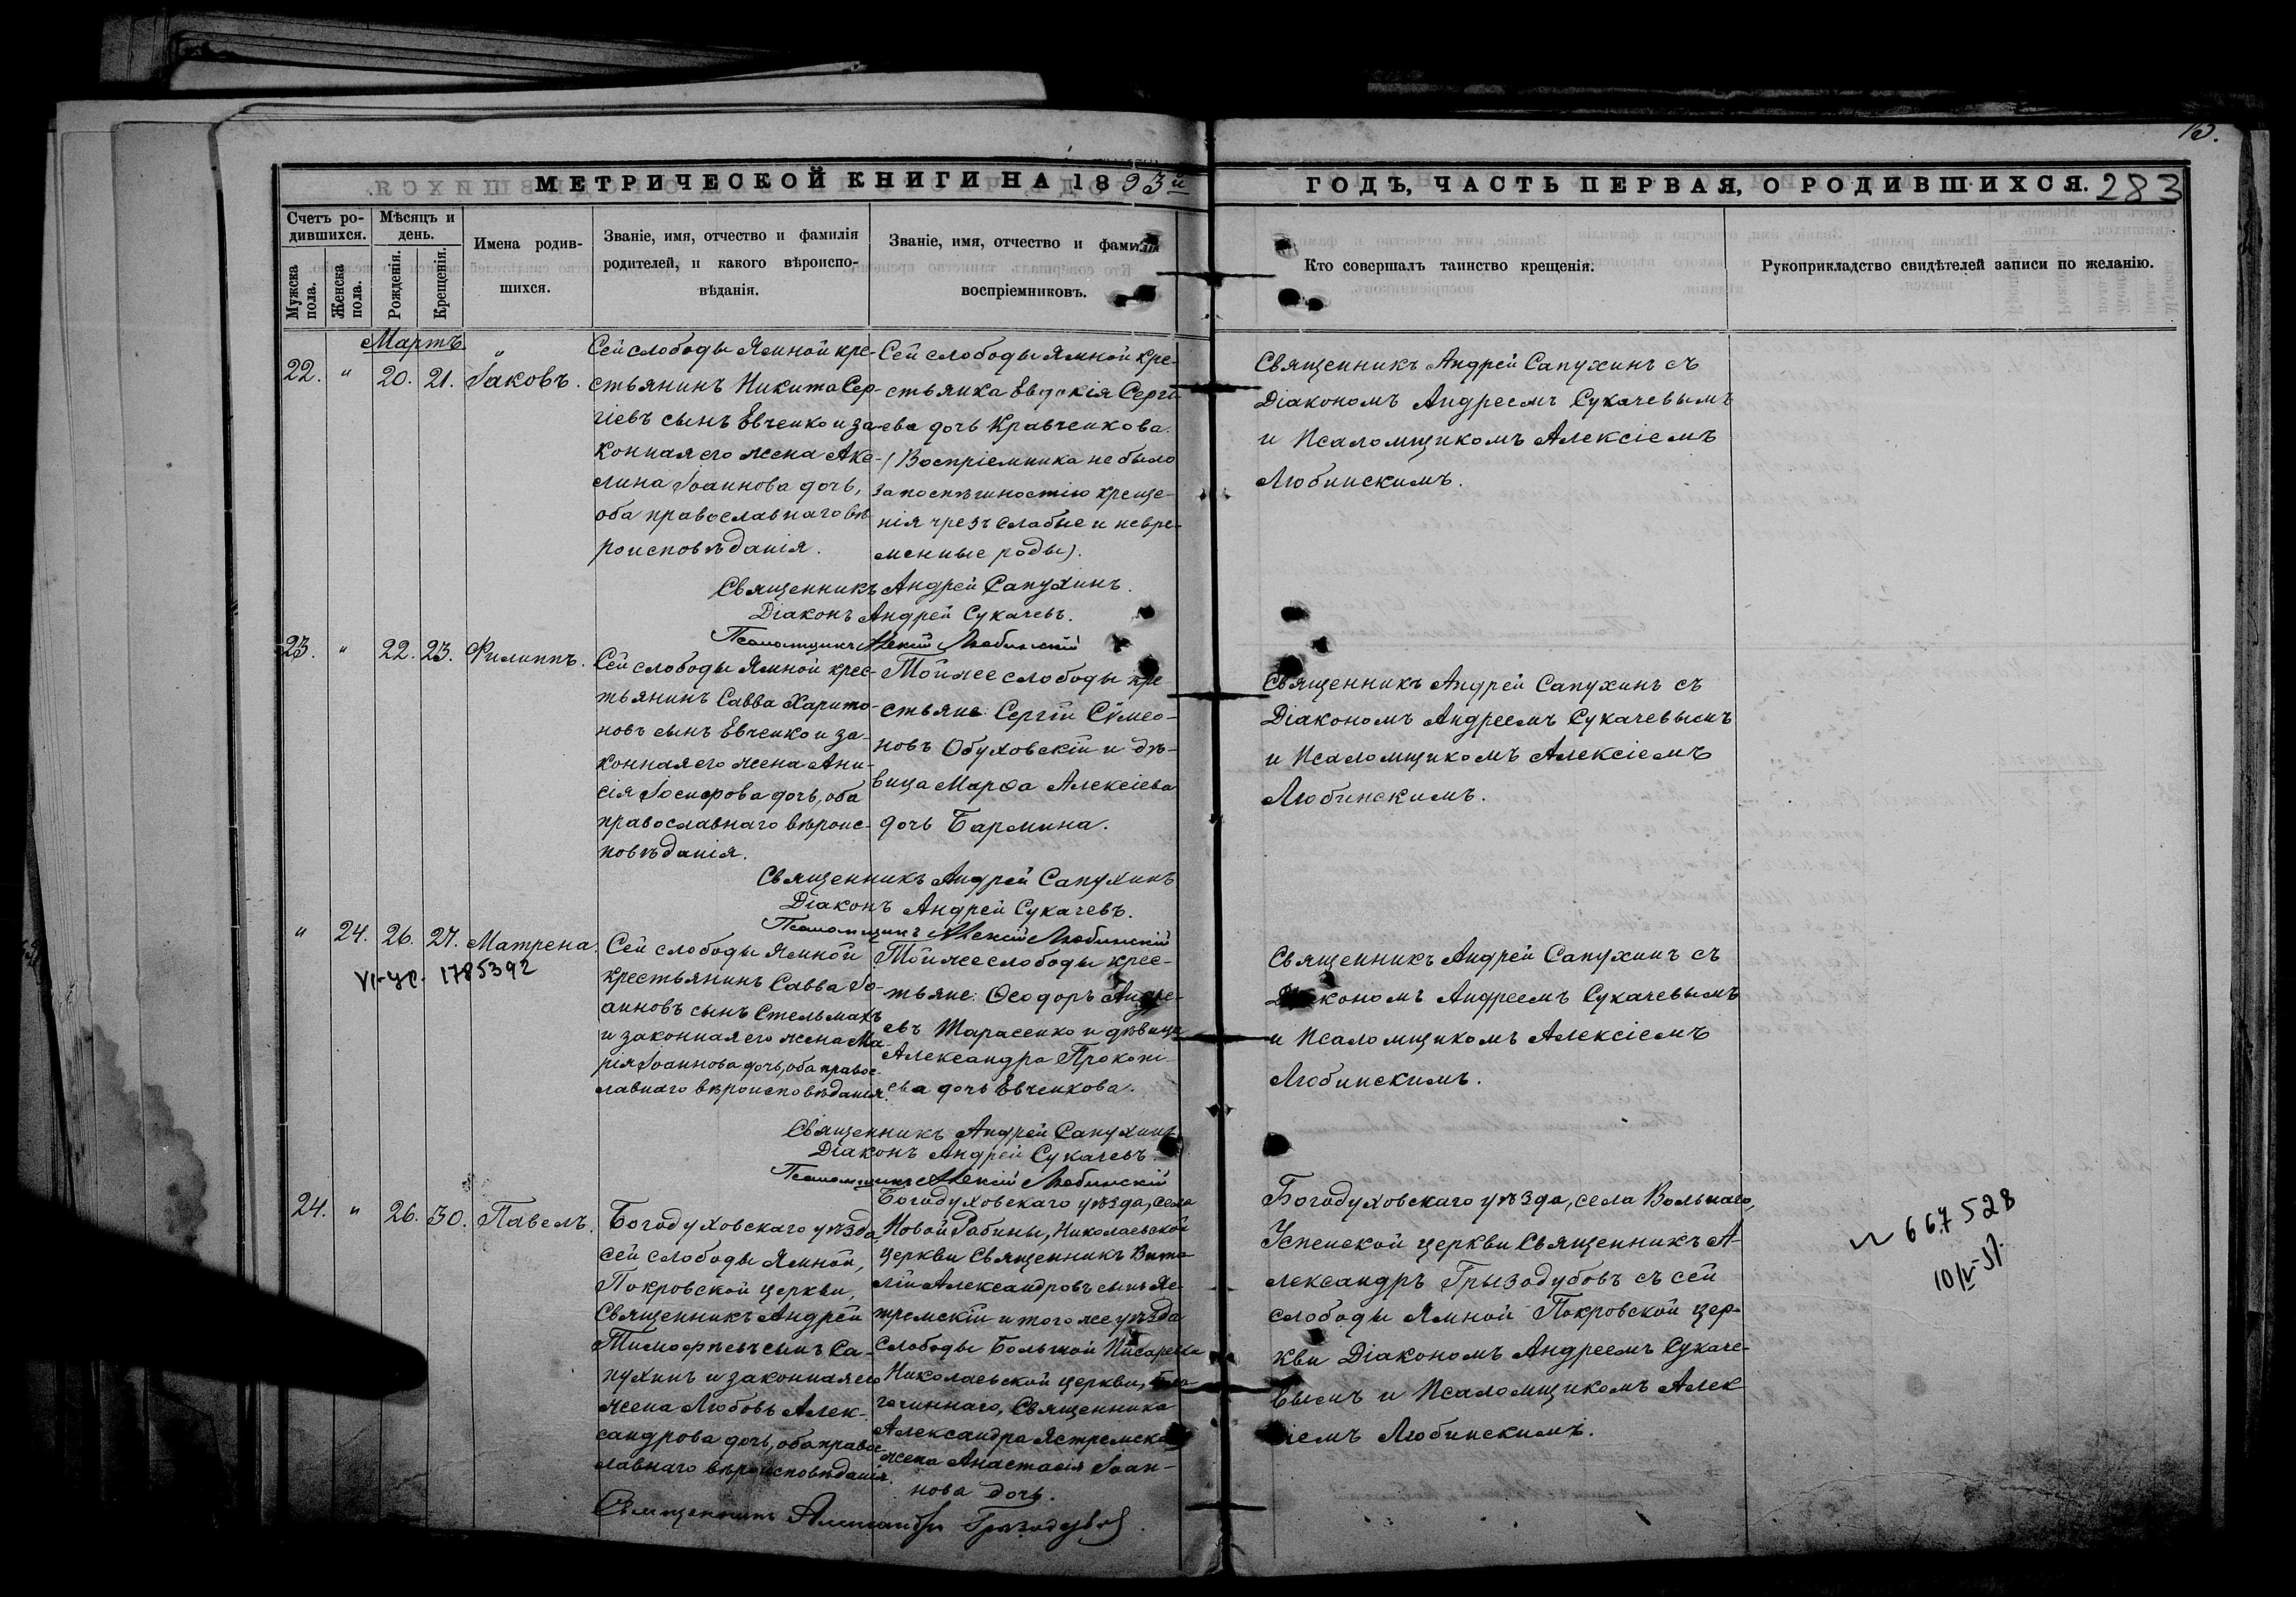 15.
МЕТРИЧЕСКОЙ КНИГИ НА 1893й
ГОДЪ, ЧАСТЬ ПЕРВАЯ, О РОДИВШИХСЯ. 283
Счетъ ро-
дившихся.
Мужска
пола.
Женска
пола.
Мѣсяцъ и
день.
Рожденія.
Крещенія.
Имена родив-
шихся.
Званіе, имя, отчество и фамилія
родителей, и какого вѣроиспо-
вѣданія.
Званіе, имя, отчество и фамилія
воспріемниковъ.
Кто совершалъ таинство крещенія.
Рукоприкладство свидѣтелей записи по желанію.
Мартъ
22. " 20. 21. Іаковъ.
Сей слободы Ямной кре-
стьянинъ Никита Сер-
гіевъ сынъ Евченко и за-
конная его жена Аке-
лина Іоаннова дочь,
оба православнаго вѣ
роисповѣданія.
Сей слободы Ямной кре-
стьянка Евдокія Серги
ева дочь Кравченкова.
(Воспріемника не было
за поспѣшностію креще-
нія чрезъ слабые и невре-
менные роды).
Священникъ Андрей Сапухинъ съ
Діакономъ Андреемъ Сукачевымъ
и Псаломщикомъ Алексіемъ
Любинскимъ.
Священникъ Андрей Сапухинъ.
Діаконъ Андрей Сукачевъ.
Псаломщикъ Алексій Любинскій
23. " 22. 23. Филиппъ.
Сей слободы Ямной крес-
тьянинъ Савва Харито-
новъ сынъ Евченко и за-
конная его жена Ани-
сія Іосифова дочь, оба
православнаго вѣроис-
повѣданія.
Той же слободы кре
стьяне: Сергій Сѵмео-
новъ Обуховскій и дѣ-
вица Марѳа Алексіева
дочь Бармина.
Священникъ Андрей Сапухинъ съ
Діакономъ Андреемъ Сукачевымъ
и Псаломщикомъ Алексіемъ
Любинскимъ.
Священникъ Андрей Сапухинъ
Діаконъ Андрей Сукачевъ.
Псаломщикъ Алексій Любинскій
" 24. 26. 27. Матрена.
1785392
Сей слободы Ямной
крестьянинъ Савва Іо-
анновъ сынъ Стельмахъ
и законная его жена Ма-
рія Іоаннова дочь, оба правос-
лавнаго вѣроисповѣданія.
Той же слободы крес-
тьяне: Ѳеодоръ Андре-
евъ Тарасенко и дѣвица
Александра Прокопи-
ева дочь Евченкова.
Священникъ Андрей Сапухинъ съ
Діакономъ Андреемъ Сукачевымъ
и Псаломщикомъ Алексіемъ
Любинскимъ.
Священникъ Андрей Сапухинъ
Діаконъ Андрей Сукачевъ.
Псаломщикъ Алексій Любинскій
24. " 26. 30. Павелъ.
Богодуховскаго уѣзда,
сей слободы Ямной,
Покровской церкви,
Священникъ Андрей
Тимофеевъ сынъ Са-
пухинъ и законная его
жена Любовь Алек-
сандрова дочь, оба правос
лавнаго вѣроисповѣданія.
Богодуховскаго уѣзда, села
Новой Рабины, Николаевской
церкви Священникъ Вита
лій Александровъ сынъ Яс-
тремскій и того же уѣзда
Слободы Большой Писаревки
Николаевской церкви, бла
гочиннаго, Священника
Александра Ястремска
жена Анастасія Іоан-
нова дочь.
Богодуховскаго уѣзда, села Вольнаго,
Успенской церкви Священникъ А-
лександръ Грызодубовъ съ сей
слободы Ямной Покровской цер-
кви Діакономъ Андреемъ Сукаче-
вымъ и Псаломщикомъ Алек
сіемъ Любинскимъ.
667528
Священникъ Александръ Грызодубовъ